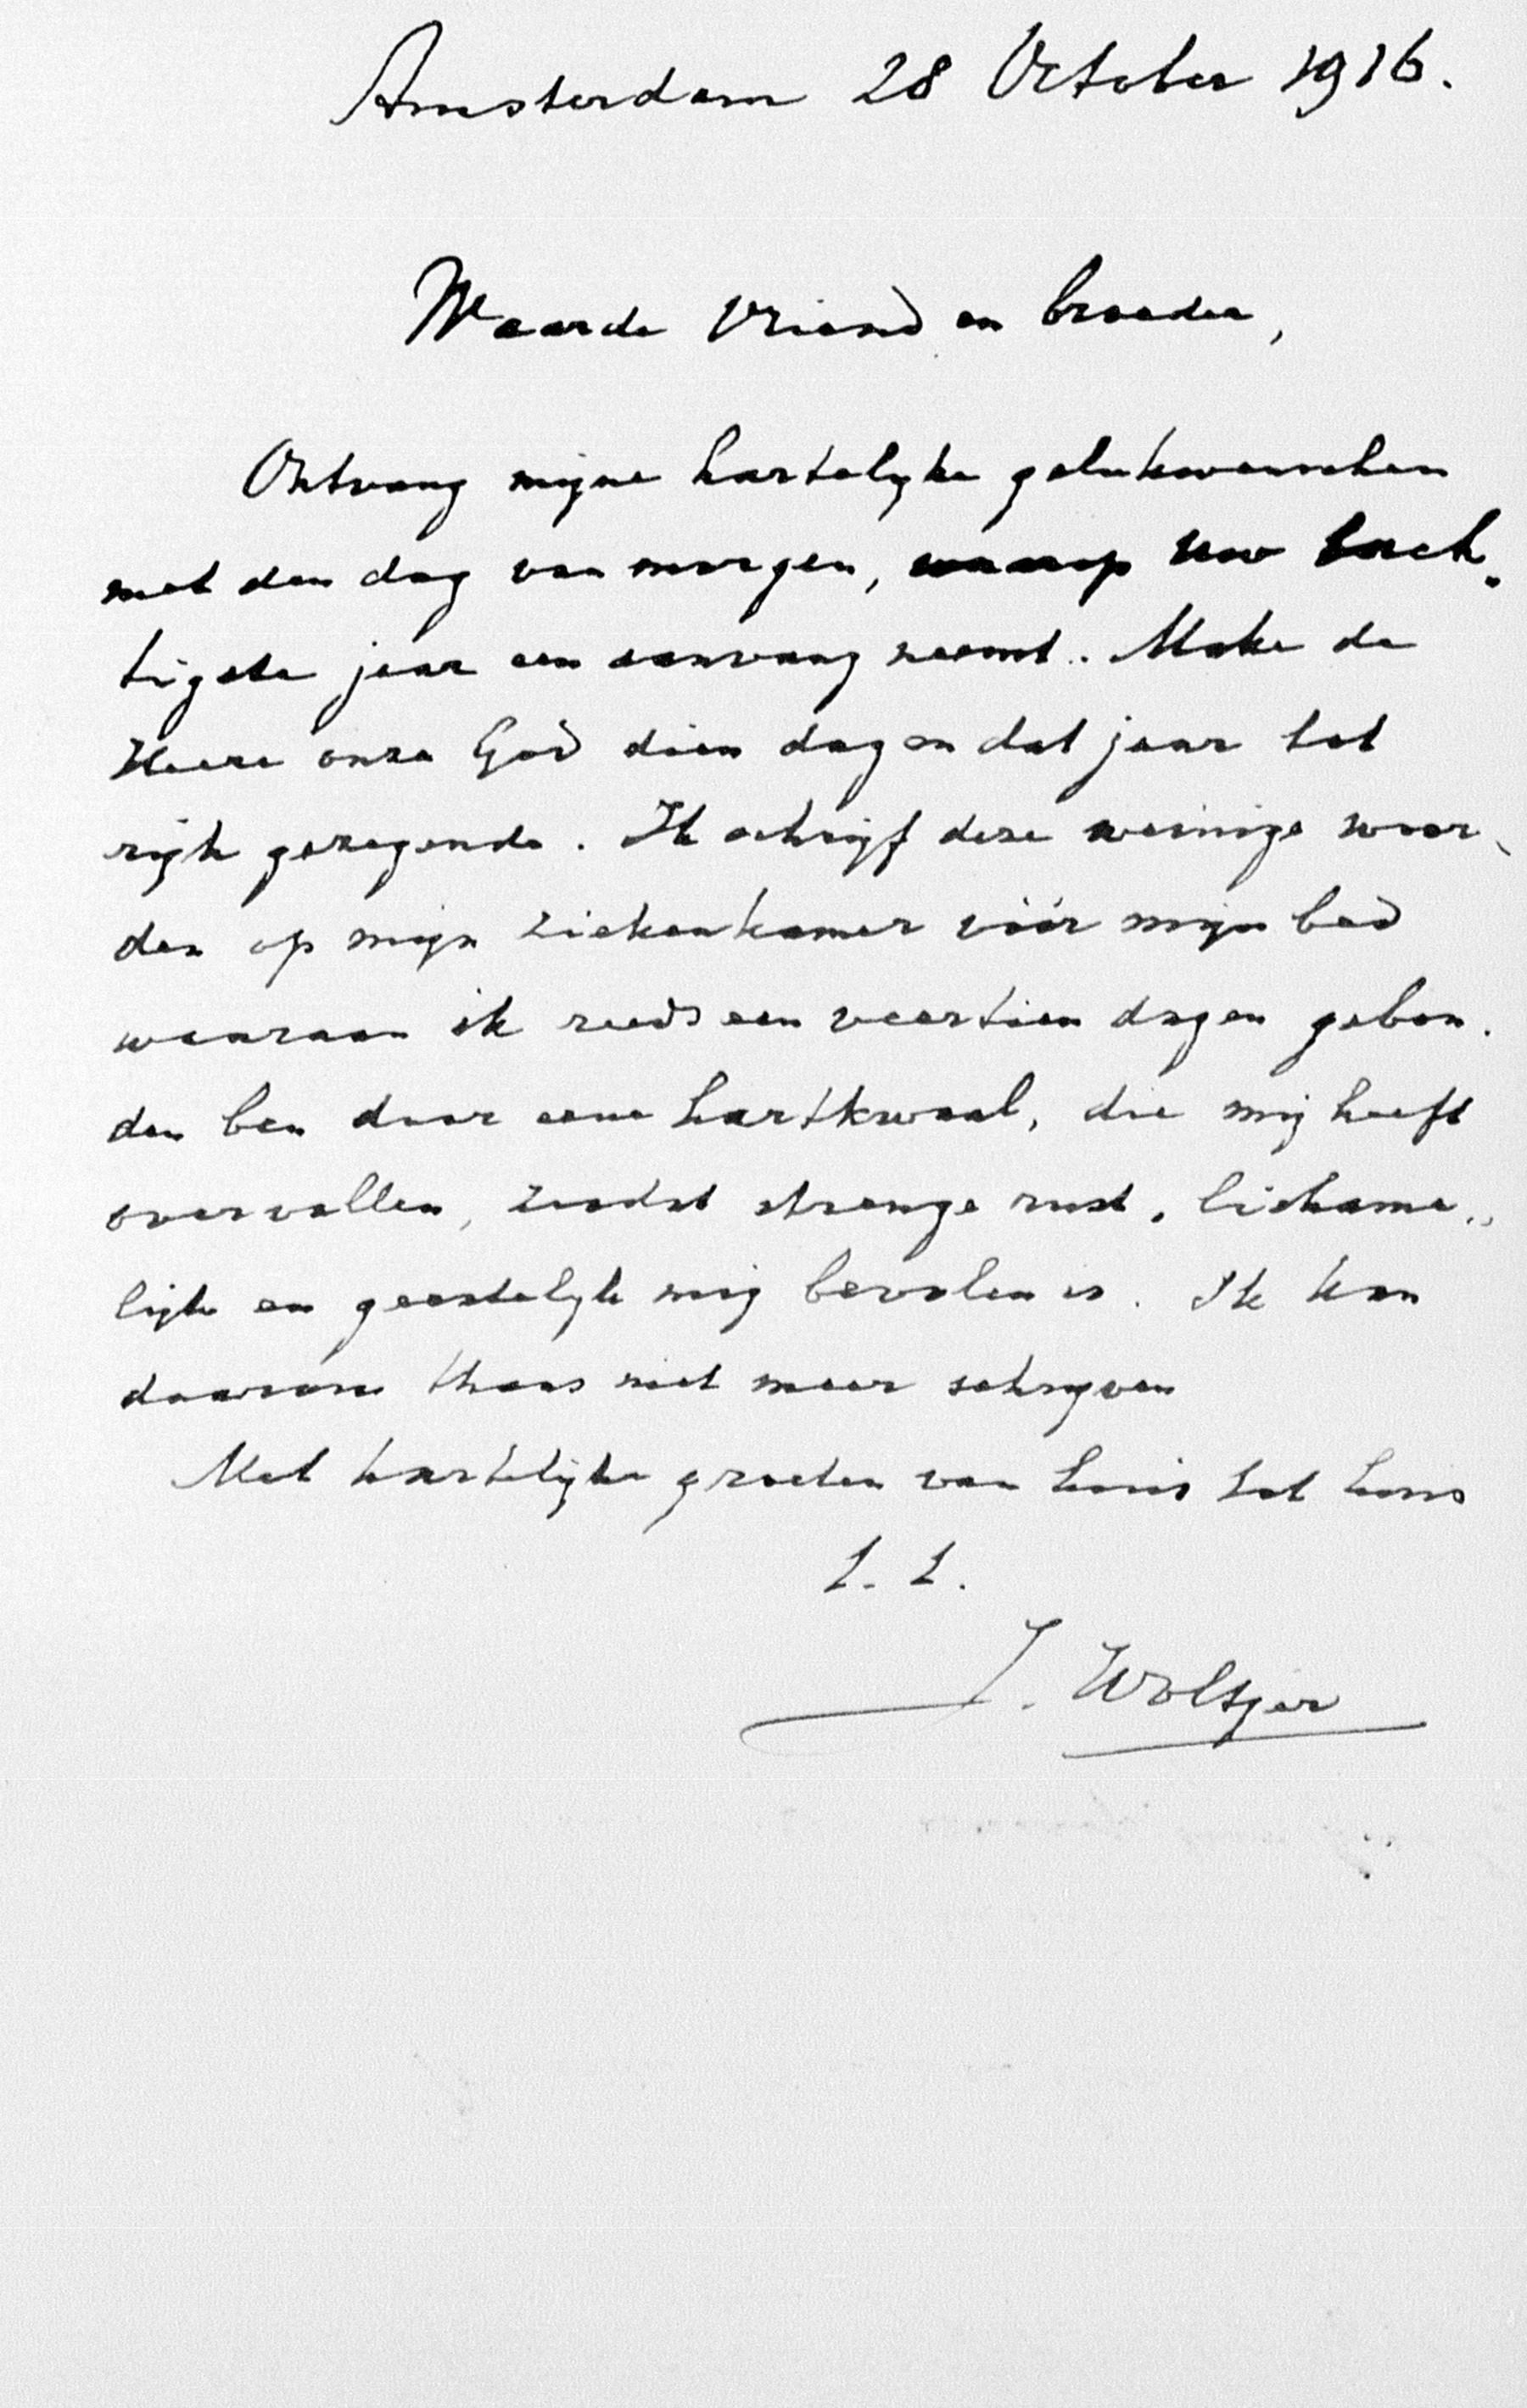 Amsterdam 28 October 1916.
Waarde Vriend en broeder,
Ontvang mijne hartelijke gelukwenschen
met den dag van morgen, waarop Uw tach-
tigste jaar een aanvang neemt. Make de
Heere onze God dien dag en dat jaar tot
rijk gezegende. Ik schrijf deze weinige woor-
den op mijn ziekenkamer vóór mijn bed
waaraan ik reeds een veertien dagen gebon-
den ben door eene hartkwaal, die mij heeft
overvallen, zoodat strenge rust, lichame-
lijk en geestelijk mij bevolen is. Ik kan
daarom thans niet meer schrijven
Met hartelijke groeten van huis tot huis
t. t.
J. Woltjer